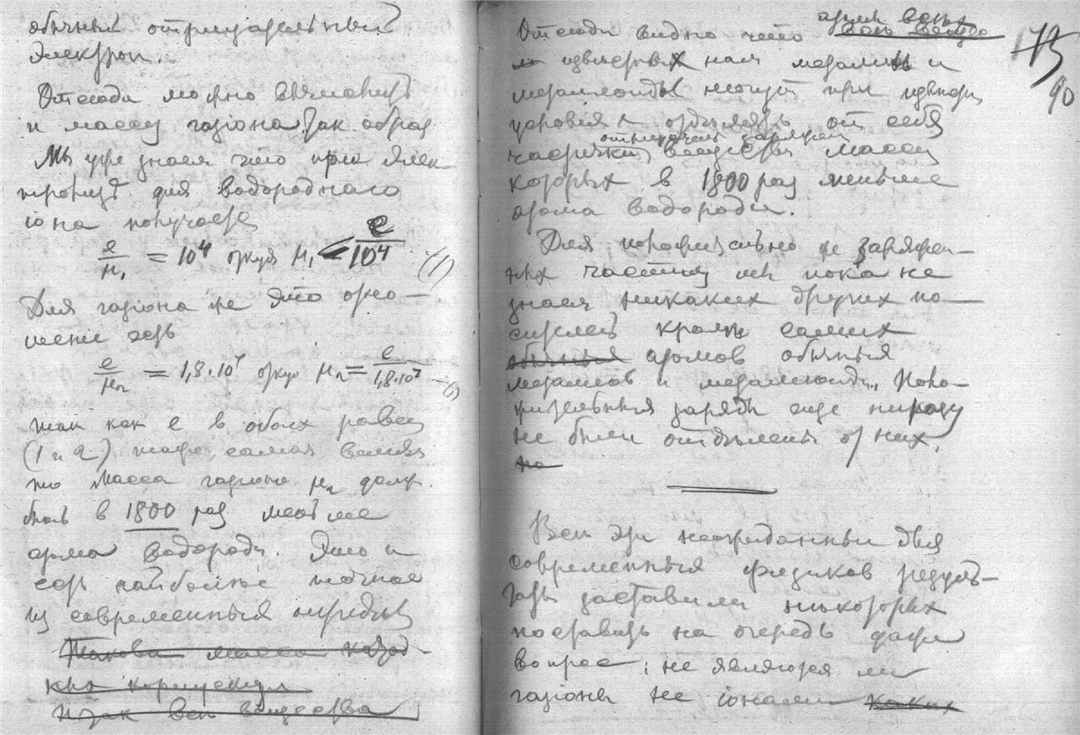 обычный отрицательный
электрон.
Отсюда можно вычислить
и массу гадіона. так образ
Мы уже знаем что при элек
тролизѣ для водороднаго
іона получаем
e/μ₁ = 10⁴ откуда μ₁ = e/10⁴ (1)
Для гадіона же это отно-
шеніе есть
e/μ₂ = 1,8·10⁷ откуда μ₂ = e/1,8·10⁷
так как e в обоих равен
(1 и 2) таже самая
то масса гадіона μ₂ долж.
быть в 1800 раз меньше
атома водорода. Это и
есть наиболѣе точное
из современных
Такова масса
Итак всѣ вещества
173
90
Отсюда видно что
извѣстных нам металлы и
металлоиды могут при извѣстн
условіях отдѣлять от себя
отрицательно заряжен
частички вещества масса
которых в 1800 раз меньше
атома водорода.
Для положительно же заряжен-
ных частиц мы пока не
знаем никаких других но-
сителей кромѣ самих
обычных атомов обычных
металлов и металлоидов. Поло-
жительныя заряды еще никогда
не были отдѣлены от них.
Всѣ эти неожиданные для
современных физиков резуль-
таты заставили нѣкоторых
поставить на очередь даже
вопрос: не являются ли
гадіоны не іонами каких